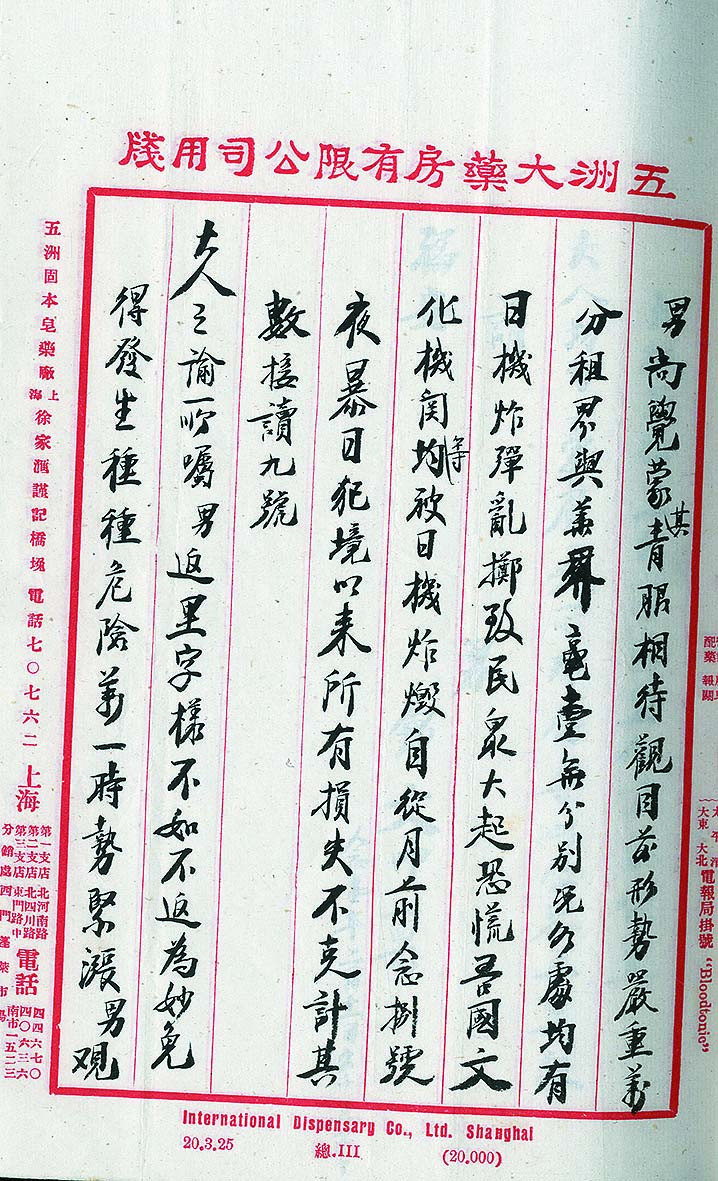 五洲大藥房有限公司用牋
男尚覺蒙其青眼相待觀目前形勢嚴重萬
分租界與華界毫壹無分別况各處均有
日機炸彈亂擲致民衆大起恐慌吾國文
化機関等均被日機炸燬自從月前念捌號
夜暴日犯境以来所有損失不克計其
數接讀九號
大人之諭一吩囑男返里字樣不如不返為妙免
得發生種種危險萬一時勢緊漲男观
配藥 報關
大東 大北 電報局掛號 “Bloodtonic”
五洲固本皂藥廠 上海 徐家滙謹記橋塊 電話七〇七六二 上海
第一支店 北河南路
第二支店 北四川路
第三支店 東門路中
分銷處 西門蓬萊市場
電話
四四六七〇
四〇六三六
南市一五二三
International Dispensary Co., Ltd. Shanghai
20.3.25 總.III (20,000)